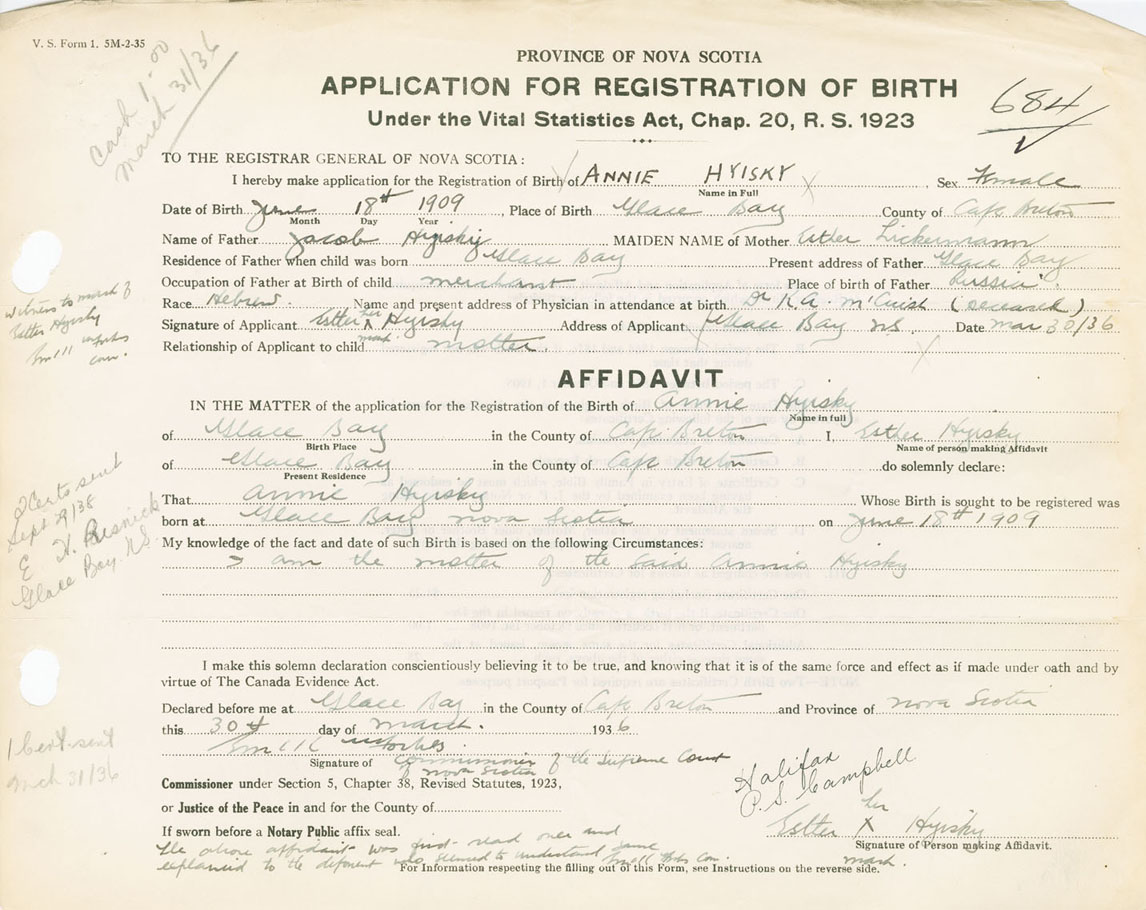 V. S. Form 1. 5M-2-35
Cash 1.00
March 31/36
PROVINCE OF NOVA SCOTIA
APPLICATION FOR REGISTRATION OF BIRTH
Under the Vital Statistics Act, Chap. 20, R. S. 1923
684
TO THE REGISTRAR GENERAL OF NOVA SCOTIA:
I hereby make application for the Registration of Birth of ANNIE HYISKY, Sex Female
Name in Full
Date of Birth June 18th 1909, Place of Birth Glace Bay County of Cape Breton
Month Day Year
Name of Father Jacob Hyisky MAIDEN NAME of Mother Esther Lickermann
Residence of Father when child was born Glace Bay Present address of Father Glace Bay
Occupation of Father at Birth of child merchant Place of birth of Father Russia
Race Hebrew Name and present address of Physician in attendance at birth Dr K.A. McCuish (deceased)
Signature of Applicant Esther her X Hyisky Address of Applicant Glace Bay NS Date Mar 30/36
mark
Relationship of Applicant to child mother
witness to mark of
Esther Hyisky
com.
AFFIDAVIT
IN THE MATTER of the application for the Registration of the Birth of Annie Hyisky
Name in full
of Glace Bay in the County of Cape Breton I, Esther Hyisky
Birth Place Name of person making Affidavit
of Glace Bay in the County of Cape Breton do solemnly declare:
Present Residence
That Annie Hyisky Whose Birth is sought to be registered was
born at Glace Bay Nova Scotia on June 18th 1909
My knowledge of the fact and date of such Birth is based on the following Circumstances:
I am the mother of the said Annie Hyisky
2 Certs sent
Sept 9/38
E. H. Resnick
Glace Bay. N.S.
I make this solemn declaration conscientiously believing it to be true, and knowing that it is of the same force and effect as if made under oath and by
virtue of The Canada Evidence Act.
Declared before me at Glace Bay in the County of Cape Breton and Province of Nova Scotia
this 30th day of March. 1936
Signature of Commissioner of the Supreme Court
of Nova Scotia
1 Cert sent
Mch 31/36
Commissioner under Section 5, Chapter 38, Revised Statutes, 1923,
or Justice of the Peace in and for the County of
Halifax
P.S. Campbell
If sworn before a Notary Public affix seal.
her
Esther X Hyisky
mark
Signature of Person making Affidavit.
The above affidavit was first read over and
explained to the deponent who seemed to understand same
For Information respecting the filling out of this Form, see Instructions on the reverse side.